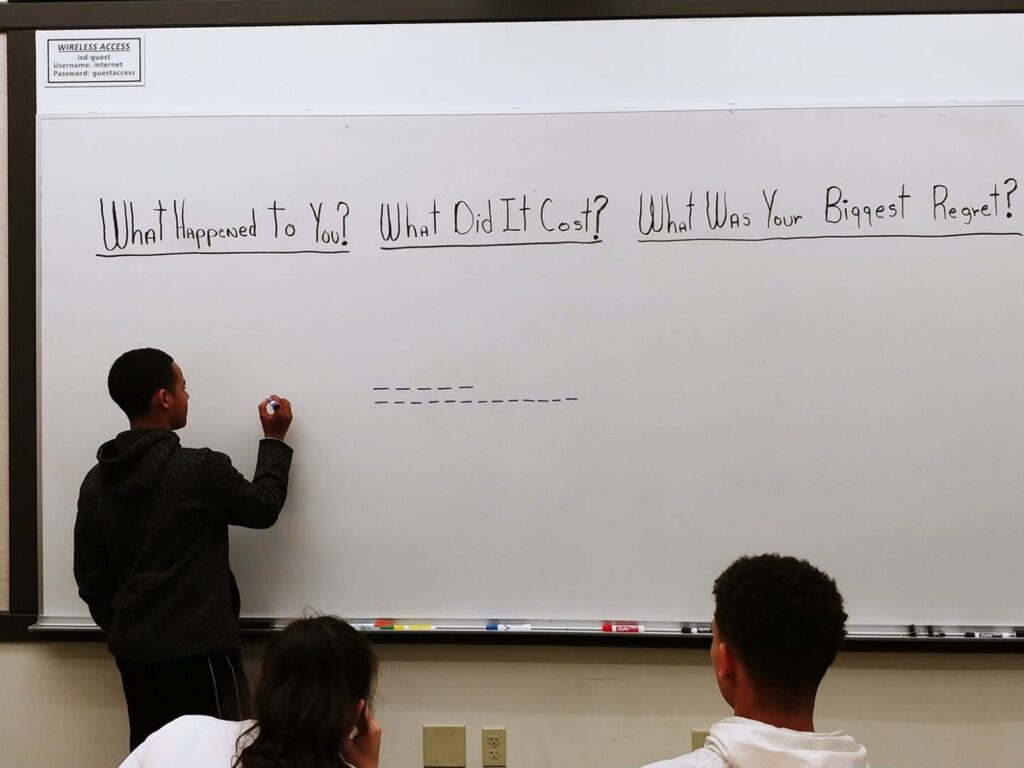 WIRELESS ACCESS
isd-guest
Username: internet
Password: guestaccess
What Happened To You? What Did It Cost? What Was Your Biggest Regret?